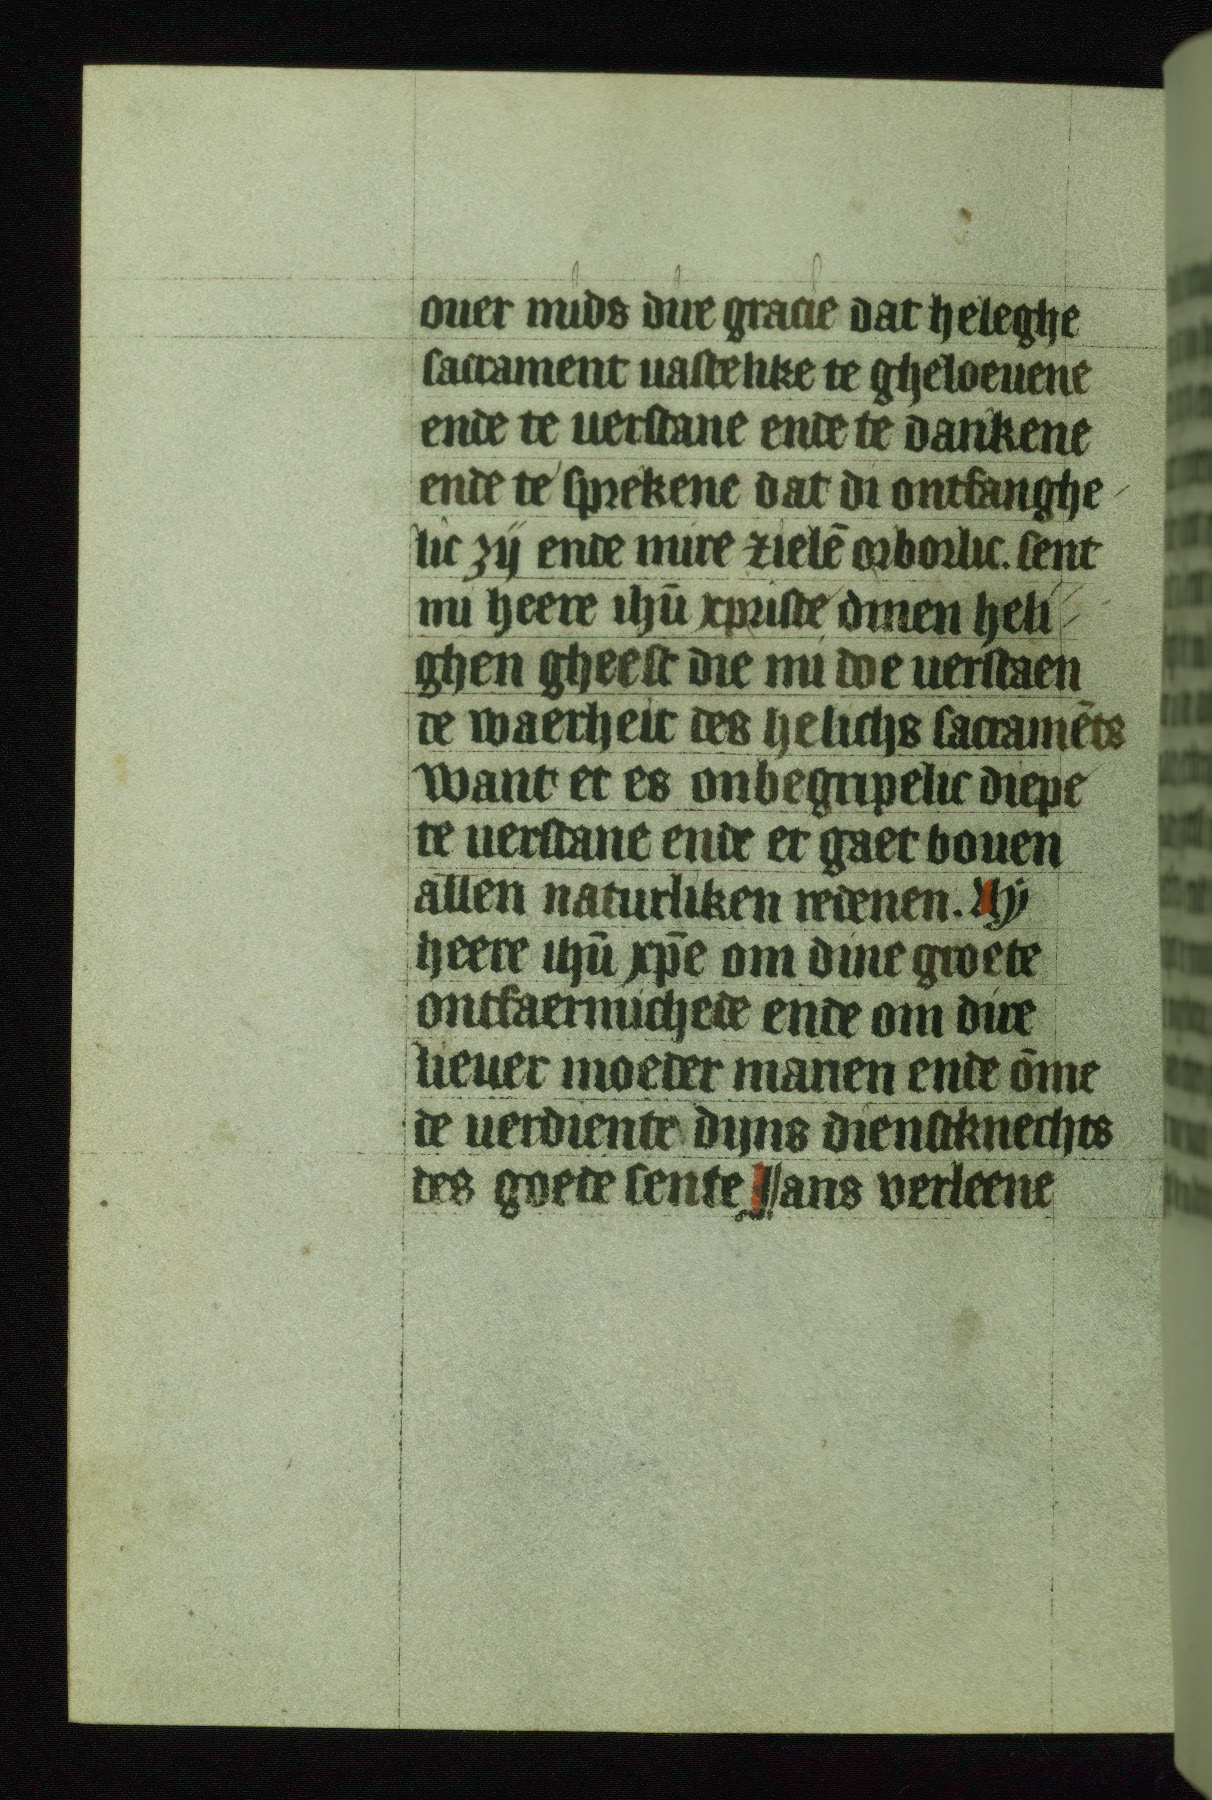 ouer mids dire gracie dat heleghe
sacrament uastelike te gheloeuene
ende te uerstane ende te dankene
ende te sprekene dat di ontfanghe
lic zij ende mire zielē orborlic. sent
mi heere ihū xpriste dinen heli
ghen gheest die mi doe uerstaen
de waerheit des helichs sacramēts
want et es onbegripelic diepe
te uerstane ende et gaet bouen
allen naturliken redenen. Ay
heere ihū xp̄e om dine groete
ontfaermichede ende om dire
lieuer moeder marien ende ōme
de uerdiente dijns dienstknechts
des goede sente Jans verleene